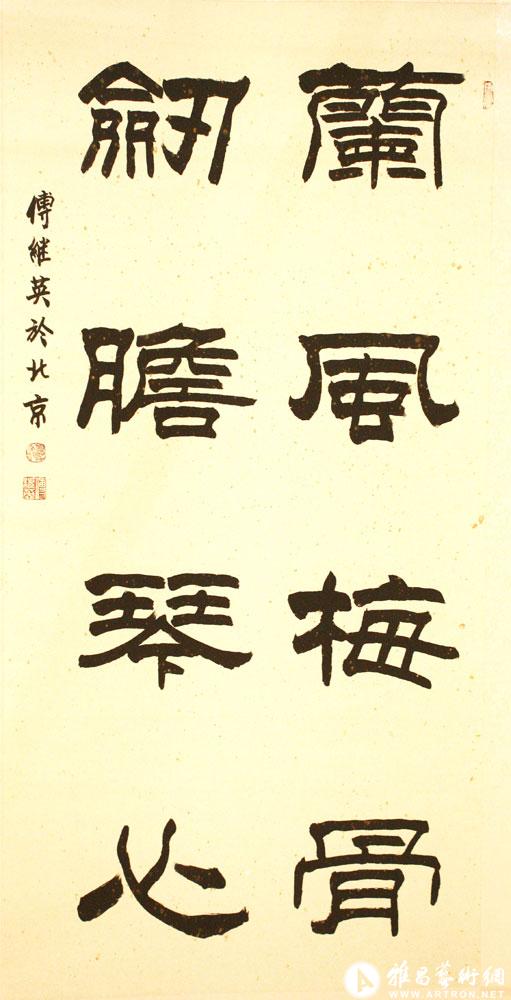 蘭風梅骨
劒膽琴心
傅继英於北京
雅昌藝術網
WWW.ARTRON.NET